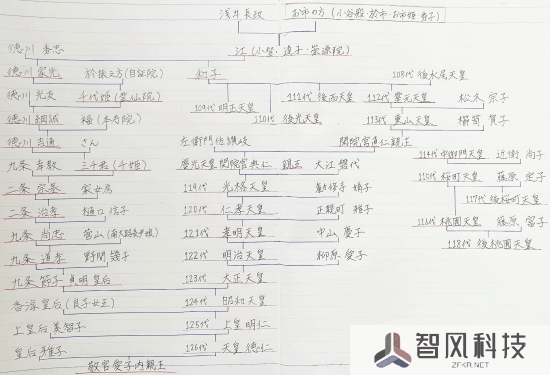 浅井長政 お市の方(小谷殿・於市・お市姫・秀子)
徳川 秀忠 江(小督・達子・崇源院)
徳川 家光 於振之方(自証院) 和子 108代 後水尾天皇
徳川 光友 千代姫(霊仙院) 109代 明正天皇 110代 後光天皇 111代 後西天皇 112代 霊元天皇 松木 宗子
徳川 綱誠 福(本寿院) 113代 東山天皇 櫛笥 賀子
徳川 吉通 さん 左衛門佐讃岐 閑院宮直仁親王 114代 中御門天皇 近衛 尚子
九条 幸教 三千君(千姫) 慶光天皇 閑院宮典仁 親王 大江 磐代 115代 桜町天皇 藤原 定子
二条 宗基 家女房 119代 光格天皇 勧修寺 婧子 117代 後桜町天皇
二条 治孝 樋口 信子 120代 仁孝天皇 正親町 雅子 116代 桃園天皇 藤原 富子
九条 尚忠 菅山(南大路長尹娘) 121代 孝明天皇 中山 慶子 118代 後桃園天皇
九条 道孝 野間 幾子 122代 明治天皇 柳原 愛子
九条 節子 貞明 皇后 123代 大正天皇
香淳皇后(良子女王) 124代 昭和天皇
上皇后 美智子 125代 上皇 明仁
皇后 雅子 126代 天皇 徳仁
敬宮愛子内親王
智风科技
ZFKR.NET